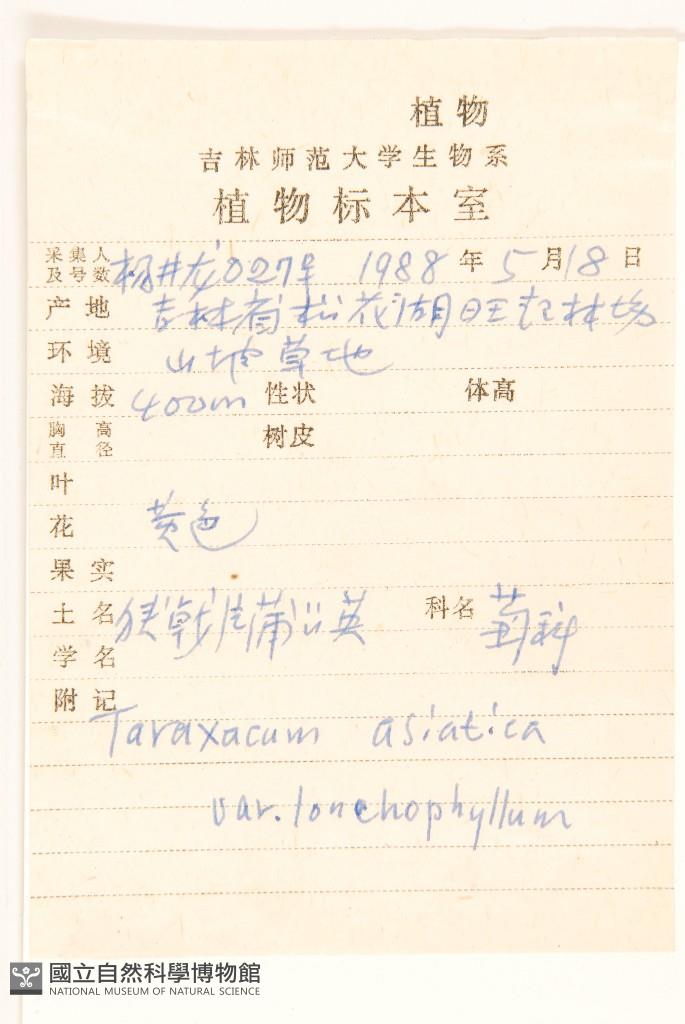 植物
吉林师范大学生物系
植物标本室
采集人及号数 杨井龙027号 1988年5月18日
产地 吉林省松花湖旺起林场
环境 山坡草地
海拔 400m 性状 体高
胸高直径 树皮
叶
花 黄色
果实
土名 戟片蒲公英 科名 菊科
学名
附记
Taraxacum asiatica
var. lonchophyllum
國立自然科學博物館
NATIONAL MUSEUM OF NATURAL SCIENCE